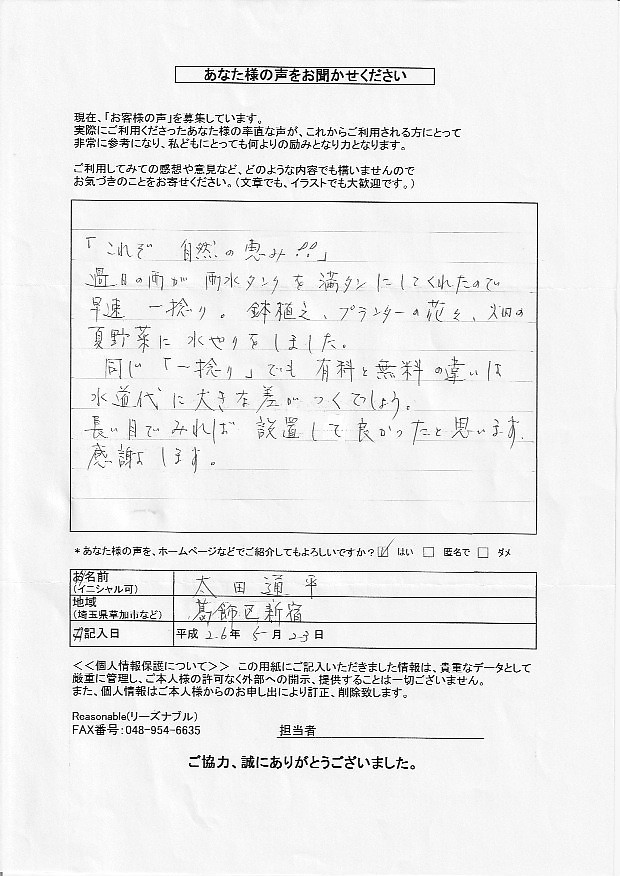 あなた様の声をお聞かせください
現在、「お客様の声」を募集しています。
実際にご利用くださったあなた様の率直な声が、これからご利用される方にとって
非常に参考になり、私どもにとっても何よりの励みとなり力となります。
ご利用してみての感想や意見など、どのような内容でも構いませんので
お気づきのことをお寄せください。（文章でも、イラストでも大歓迎です。）
「これぞ 自然の恵み!!」
過日の雨が 雨水タンクを満タンにしてくれたので
早速 一捻り。鉢植え、プランターの花々、畑の
夏野菜に水やりをしました。
同じ「一捻り」でも有料と無料の違いは
水道代に大きな差がつくでしょう。
長い目でみれば 設置して良かったと思います。
感謝します。
*あなた様の声を、ホームページなどでご紹介してもよろしいですか？☑ はい □ 匿名で □ ダメ
お名前
(イニシャル可)
太田通平
地域
(埼玉県草加市など)
葛飾区新宿
ご記入日
平成 26年 5月 23日
＜＜個人情報保護について＞＞ この用紙にご記入いただきました情報は、貴重なデータとして
厳重に管理し、ご本人様の許可なく外部への開示、提供することは一切ございません。
また、個人情報はご本人様からのお申し出により訂正、削除致します。
Reasonable(リーズナブル)
FAX番号：048-954-6635 担当者
ご協力、誠にありがとうございました。